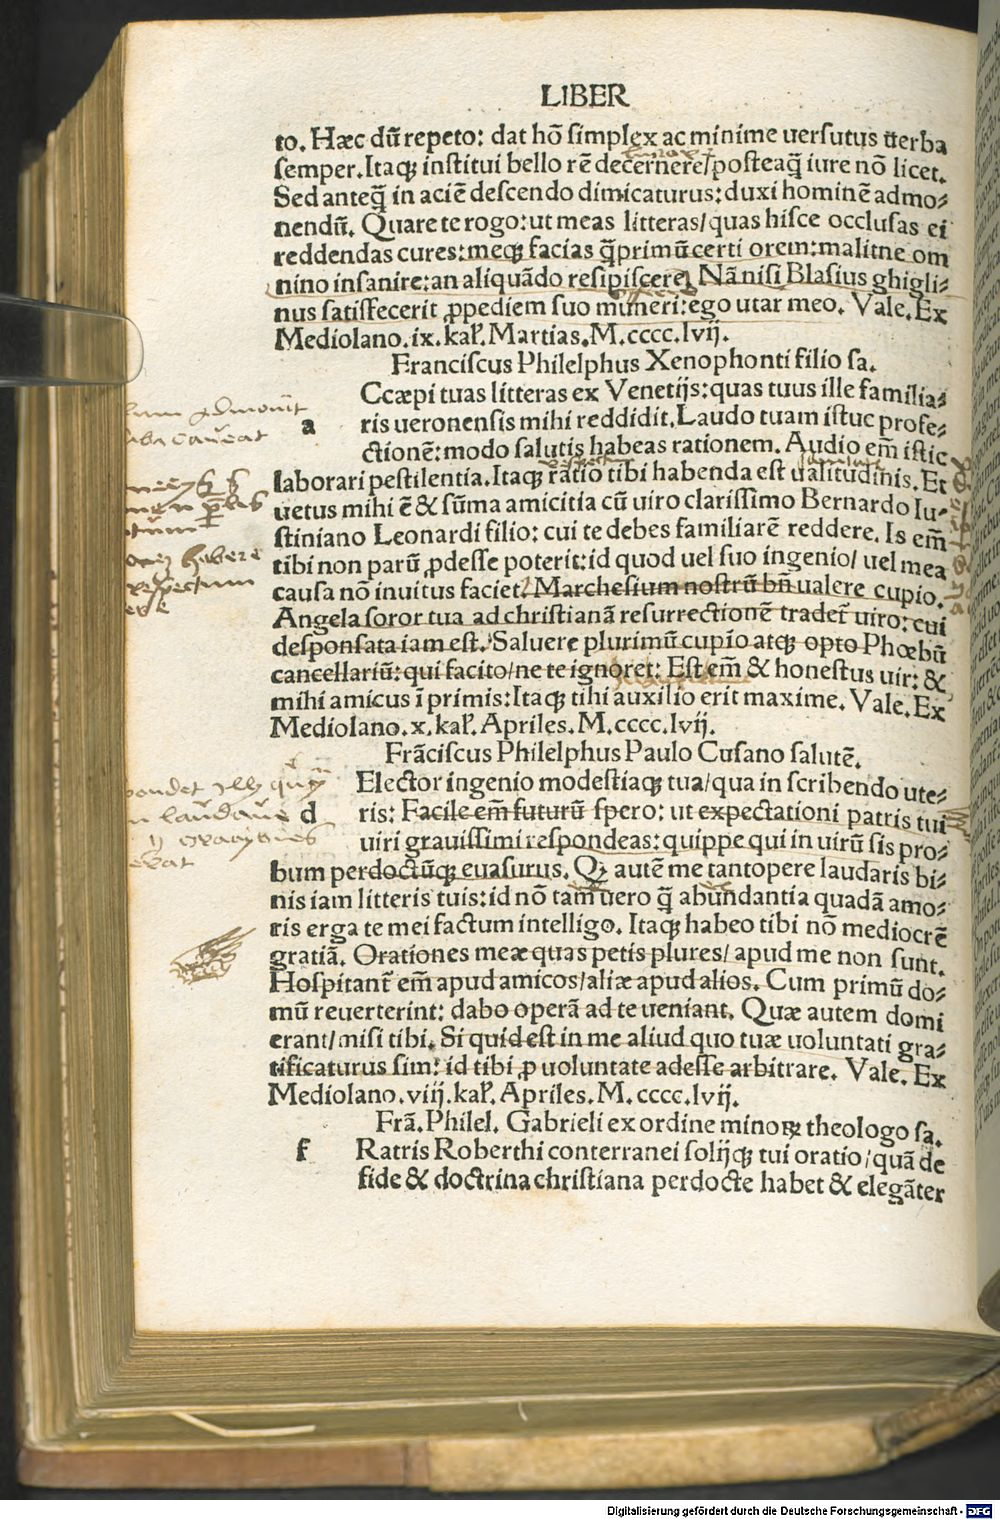 LIBER
to. Hæc dū repeto: dat hō simplex ac minime uersutus ūerba
semper. Itaqꝫ institui bello rē decernere/posteaq̄ iure nō licet.
Sed anteq̄ in aciē descendo dimicaturus: duxi hominē admo⸗
nendū. Quare te rogo: ut meas litteras/quas hisce occlusas ei
reddendas cures: meqꝫ facias q̄primū certi orem: malitne om
nino insanire: an aliquādo resipiscere. Nā nisi Blasius ghigli⸗
nus satisfecerit ꝓpediem suo muneri: ego utar meo. Vale. Ex
Mediolano. ix. kaƚ. Martias. M. cccc. lvij.
Franciscus Philelphus Xenophonti filio sa.
a Ccæpi tuas litteras ex Venetijs: quas tuus ille familia⸗
ris ueronensis mihi reddidit. Laudo tuam istuc profe⸗
ctionē: modo salutis habeas rationem. Audio em̄ istic
laborari pestilentia. Itaqꝫ ratio tibi habenda est ualitudinis. Et
uetus mihi ē & sūma amicitia cū uiro clarissimo Bernardo Iu⸗
stiniano Leonardi filio: cui te debes familiarē reddere. Is em̄
tibi non parū ꝓdesse poterit: id quod uel suo ingenio/ uel mea
causa nō inuitus faciet. Marchesium nostrū bn̄ ualere cupio.
Angela soror tua ad christianā resurrectionē tradet̄ uiro: cui
desponsata iam est. Saluere plurimū cupio atqꝫ opto Phœbū
cancellariū: qui facito/ne te ignoret: Est em̄ & honestus uir: &
mihi amicus ī primis: Itaqꝫ tihi auxilio erit maxime. Vale. Ex
Mediolano. x. kaƚ. Apriles. M. cccc. lvij.
Frāciscus Philelphus Paulo Cusano salutē.
d Elector ingenio modestiaqꝫ tua/qua in scribendo ute⸗
ris: Facile em̄ futurū spero: ut expectationi patris tui
uiri grauissimi respondeas: quippe qui in uirū sis pro⸗
bum perdoctūqꝫ euasurus. Qꝫ autē me tantopere laudaris bi⸗
nis iam litteris tuis: id nō tam uero q̄ abundantia quadā amo⸗
ris erga te mei factum intelligo. Itaqꝫ habeo tibi nō mediocrē
gratiā. Orationes meæ quas petis plures/ apud me non sunt.
Hospitant̄ em̄ apud amicos/aliæ apud alios. Cum primū do⸗
mū reuerterint: dabo operā ad te ueniant. Quæ autem domi
erant/misi tibi. Si quid est in me aliud quo tuæ uoluntati gra⸗
tificaturus sim: id tibi ꝓ uoluntate adesse arbitrare. Vale. Ex
Mediolano. viij. kaƚ. Apriles. M. cccc. lvij.
Frā. Philel. Gabrieli ex ordine minoꝝ theologo sa.
f Ratris Roberthi conterranei solijqꝫ tui oratio/quā de
fide & doctrina christiana perdocte habet & elegāter
Digitalisierung gefördert durch die Deutsche Forschungsgemeinschaft - DFG